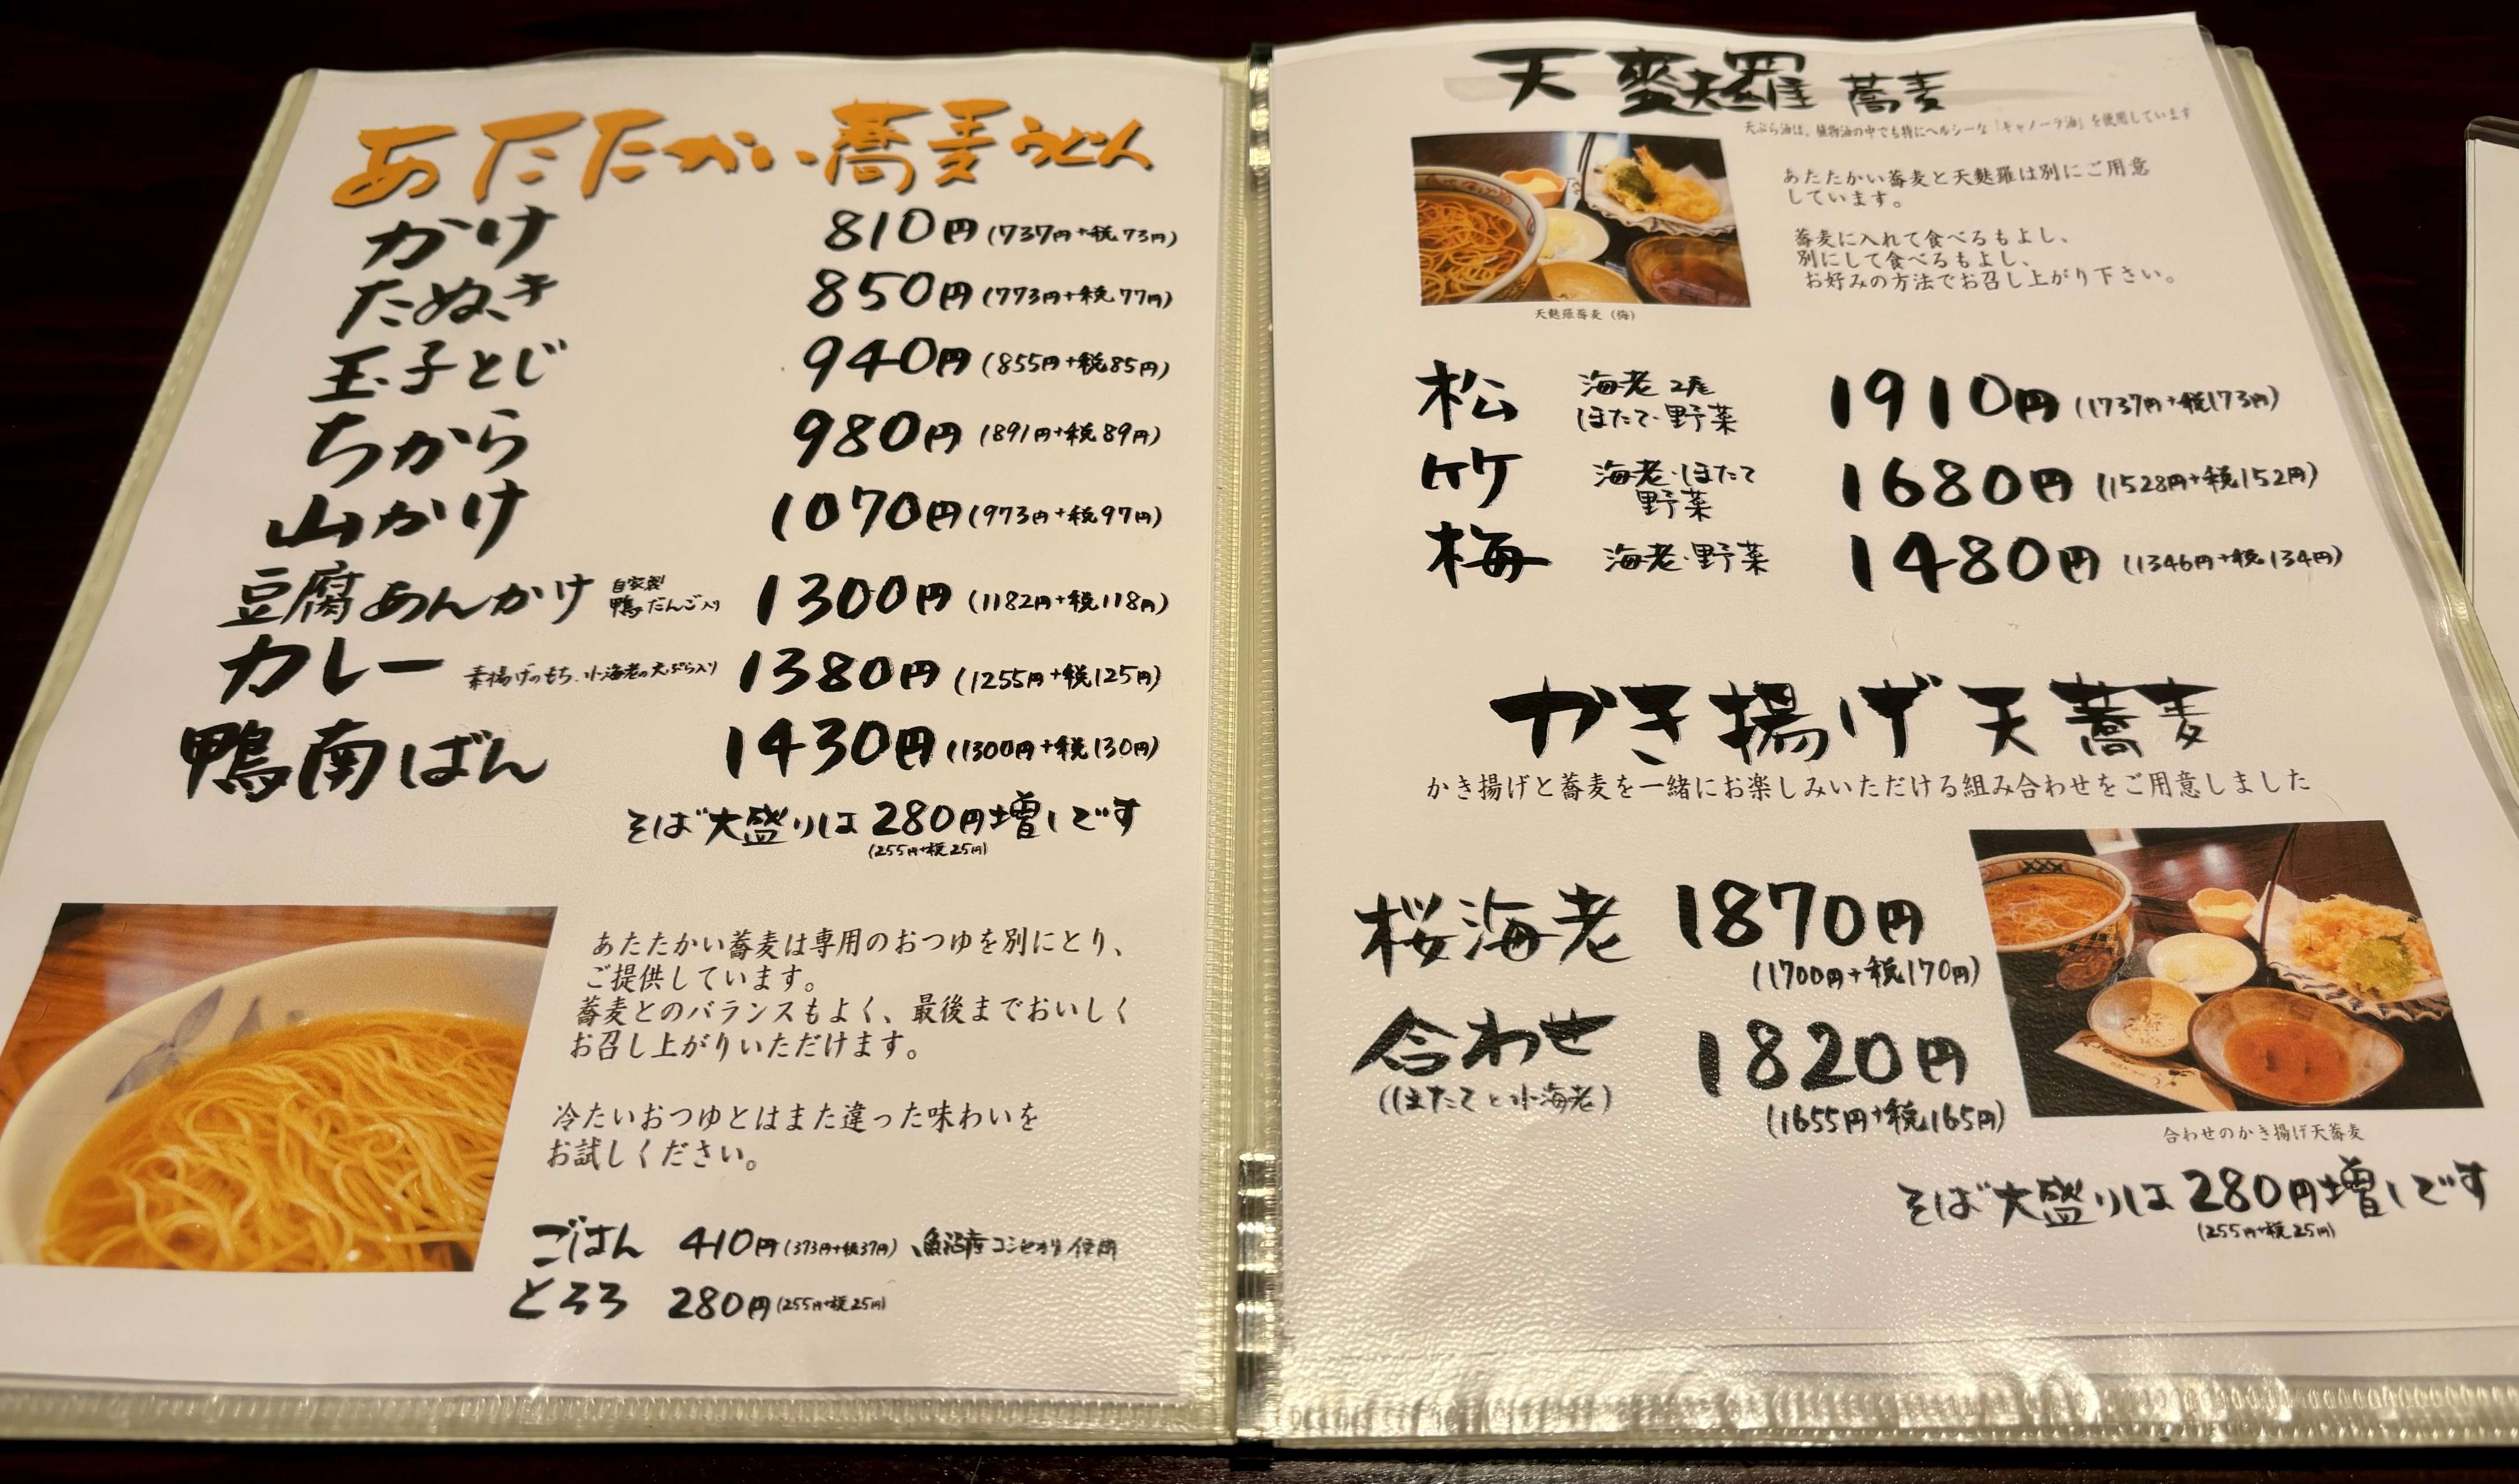 あたたかい蕎麦うどん
かけ 810円(737円+税73円)
たぬき 850円(773円+税77円)
玉子とじ 940円(855円+税85円)
ちから 980円(891円+税89円)
山かけ 1070円(973円+税97円)
豆腐あんかけ 自家製 鴨だんご入り 1300円(1182円+税118円)
カレー 素揚げのもち、小海老の天ぷら入り 1380円(1255円+税125円)
鴨南ばん 1430円(1300円+税130円)
そば大盛りは280円増しです
(255円+税25円)
あたたかい蕎麦は専用のおつゆを別にとり、
ご提供しています。
蕎麦とのバランスもよく、最後までおいしく
お召し上がりいただけます。
冷たいおつゆとはまた違った味わいを
お試しください。
ごはん 410円(373円+税37円)、魚沼産コシヒカリ使用
とろろ 280円(255円+税25円)
天麩羅蕎麦
天ぷら油は、植物油の中でも特にヘルシーな「キャノーラ油」を使用しています
あたたかい蕎麦と天麩羅は別にご用意
しています。
蕎麦に入れて食べるもよし、
別にして食べるもよし、
お好みの方法でお召し上がり下さい。
天麩羅蕎麦(梅)
松 海老2尾 ほたて・野菜 1910円(1737円+税173円)
竹 海老・ほたて 野菜 1680円(1528円+税152円)
梅 海老・野菜 1480円(1346円+税134円)
かき揚げ天蕎麦
かき揚げと蕎麦を一緒にお楽しみいただける組み合わせをご用意しました
桜海老 1870円
(1700円+税170円)
合わせ 1820円
(ほたてと小海老)
(1655円+税165円)
合わせのかき揚げ天蕎麦
そば大盛りは280円増しです
(255円+税25円)